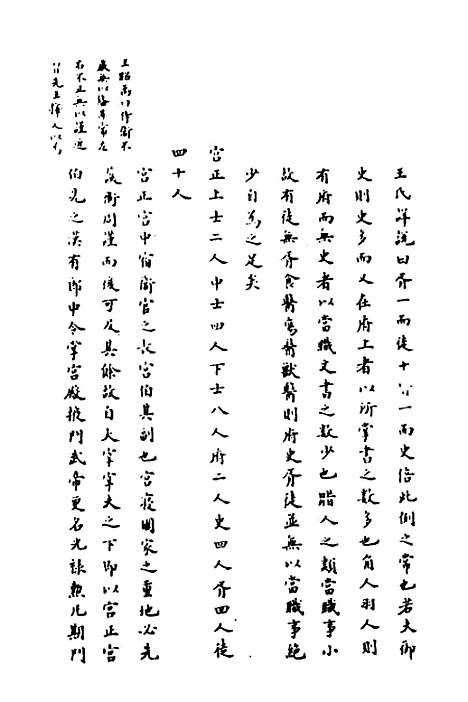 王氏詳說曰胥一而徒十府一而史倍此例之常也若大御
史則史多而又在府上者以所掌書之數多也角人羽人則
有府而無史者以當職文書之數少也腊人之類當職事小
故有徒無胥食醫瘍醫獸醫則府史胥徒並無以當職事絶
少自為之足矣
宮正上士二人中士四人下士八人府二人史四人胥四人徒
四十人
宮正宮中宿衛官之長宮伯其副也宮寢國家之重地必先
嚴衛周謹而後可及其餘故自大宰宰夫之下即以宮正宮
伯先之漢有郎中令掌宮殿掖門武帝更名光祿勲凡期門
王昭禹曰侍衛不
嚴無以
右不正無以謹
先王擇人以